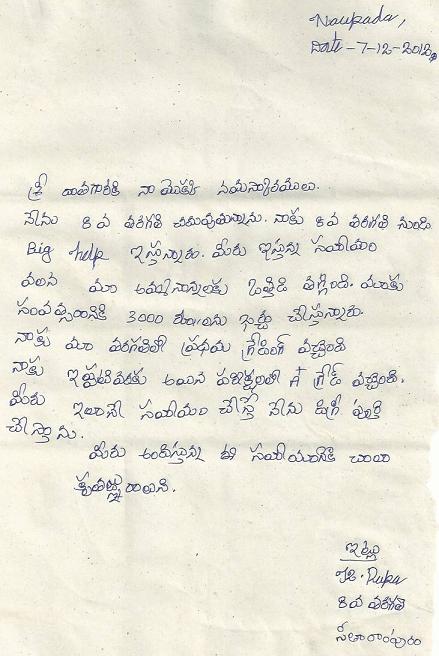 Naupada,
Date - 7-12-2012
శ్రీ దాతగారికి నా యొక్క నమస్కారములు.
నేను 8 వ తరగతి చదువుతున్నాను. నాకు 8 వ తరగతి నుండి
Big help ఇస్తున్నారు. మీరు ఇస్తున్న సహాయం
వలన మా అమ్మానాన్నలకు ఒత్తిడి తగ్గింది. మాకు
సంవత్సరానికి 3000 రూ॥లను ఖర్చు చేస్తున్నారు.
నాకు మా తరగతిలో ప్రథమ గ్రేడింగ్ వచ్చింది
నాకు ఇప్పటివరకు అయిన పరీక్షలలో A+ గ్రేడ్ వచ్చింది.
మీరు ఇలానే సహాయం చేస్తే నేను డిగ్రీ పూర్తి
చేస్తాను.
మీరు అందిస్తున్న ఈ సహాయానికి చాలా
కృతజ్ఞురాలిని.
ఇట్లు
Rupa
8 వ తరగతి
సీతారాంపురం